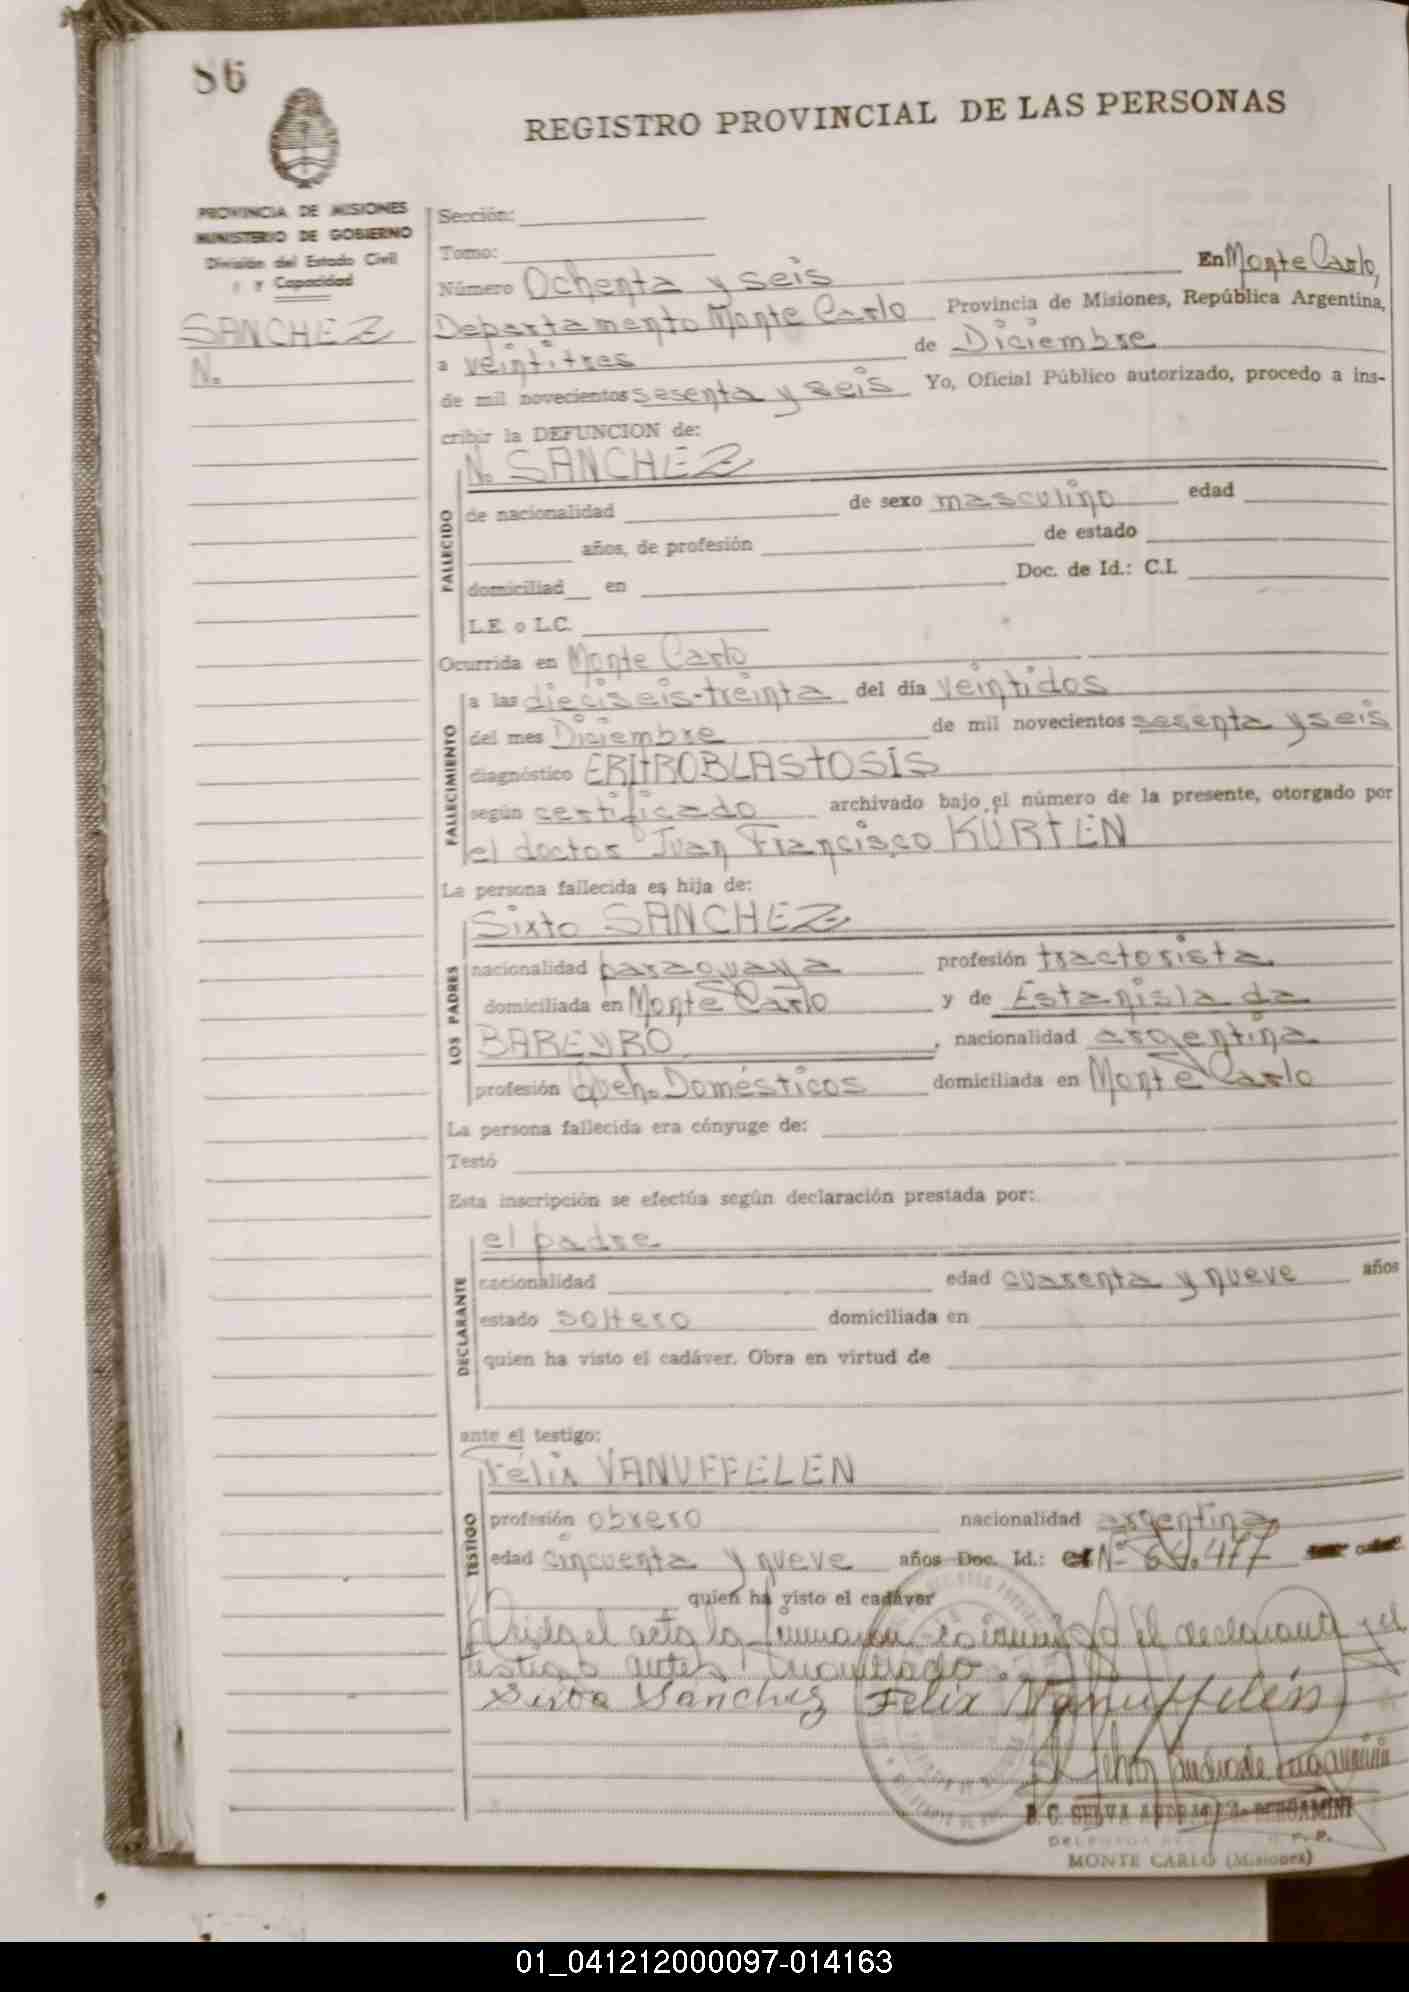 86
REGISTRO PROVINCIAL DE LAS PERSONAS
PROVINCIA DE MISIONES
MINISTERIO DE GOBIERNO
División del Estado Civil
y Capacidad
SANCHEZ
N.
Sección:
Tomo:
Número Ochenta y seis En Monte Carlo,
Departamento Monte Carlo Provincia de Misiones, República Argentina,
a veintitres de Diciembre
de mil novecientos sesenta y seis Yo, Oficial Público autorizado, procedo a ins-
cribir la DEFUNCION de:
N. SANCHEZ
FALLECIDO
de nacionalidad de sexo masculino edad
años, de profesión de estado
domiciliad en Doc. de Id.: C.I.
L.E. o L.C.
Ocurrida en Monte Carlo
FALLECIMIENTO
a las dieciseis-treinta del día veintidos
del mes Diciembre de mil novecientos sesenta y seis
diagnóstico ERITROBLASTOSIS
según certificado archivado bajo el número de la presente, otorgado por
el doctor Juan Francisco KÜRTEN
La persona fallecida es hija de:
LOS PADRES
Sixto SANCHEZ
nacionalidad paraguaya profesión tractorista
domiciliada en Monte Carlo y de Estanislada
BAREYRO, nacionalidad argentina
profesión Queh. Domésticos domiciliada en Monte Carlo
La persona fallecida era cónyuge de:
Testó
Esta inscripción se efectúa según declaración prestada por:
DECLARANTE
el padre
nacionalidad edad cuarenta y nueve años
estado soltero domiciliada en
quien ha visto el cadáver. Obra en virtud de
ante el testigo:
TESTIGO
Félix VANUFFELEN
profesión obrero nacionalidad argentina
edad cincuenta y nueve años Doc. Id.: Nº
quien ha visto el cadáver
el acta la el declarante y el
testigo antes
Sanchez Felix Vanuffelén
MONTE CARLO (Misiones)
01_041212000097-014163